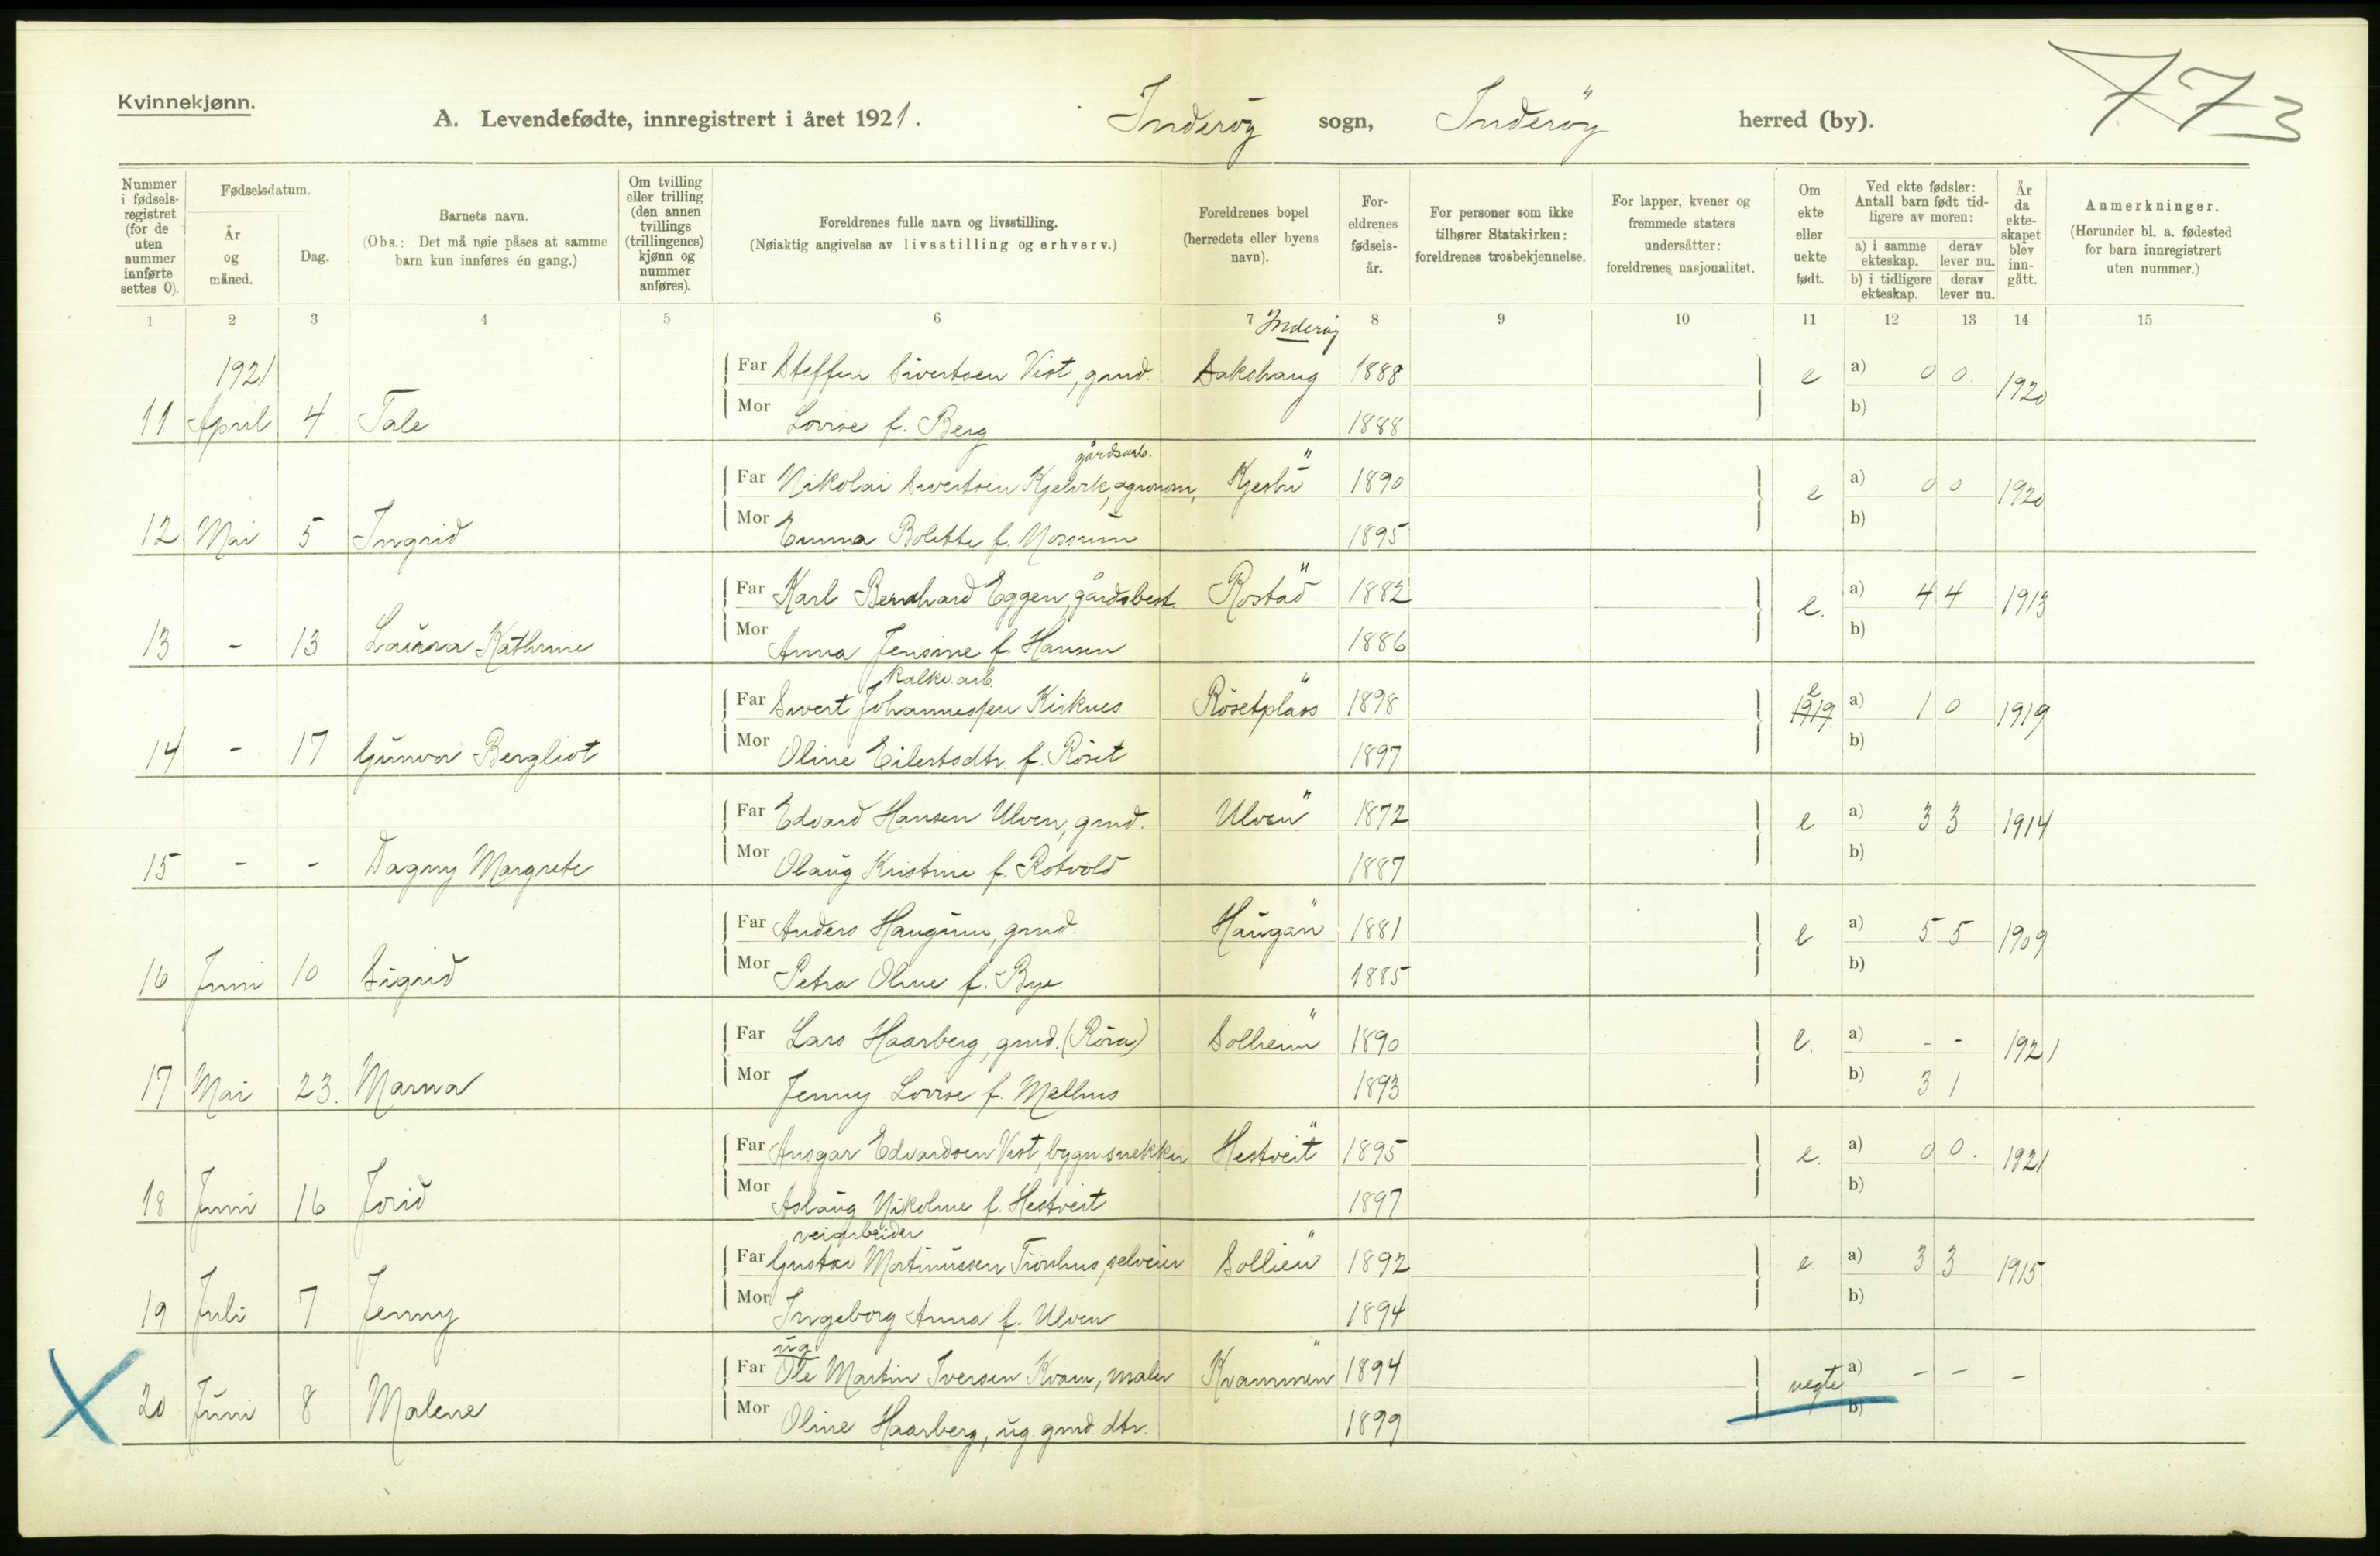 Kvinnekjønn.
A. Levendefødte, innregistrert i året 1921. Inderöy sogn, Inderöy herred (by).
773
Nummer i fødselsregistret (for de uten nummer innførte settes 0).
Fødselsdatum.
År og måned.
Dag.
Barnets navn.
(Obs.: Det må nøie påses at samme barn kun innføres én gang.)
Om tvilling eller trilling (den annen tvillings (trillingenes) kjønn og nummer anføres).
Foreldrenes fulle navn og livsstilling.
(Nøiaktig angivelse av livsstilling og erhverv.)
Foreldrenes bopel (herredets eller byens navn).
For-eldrenes fødsels-år.
For personer som ikke tilhører Statskirken: foreldrenes trosbekjennelse.
For lapper, kvener og fremmede staters undersåtter: foreldrenes nasjonalitet.
Om ekte eller uekte født.
Ved ekte fødsler: Antall barn født tidligere av moren:
a) i samme ekteskap. derav lever nu.
b) i tidligere ekteskap. derav lever nu.
År da ekte-skapet blev inn-gått.
Anmerkninger.
(Herunder bl. a. fødested for barn innregistrert uten nummer.)
1 2 3 4 5 6 7 8 9 10 11 12 13 14 15
Inderøy
1921
Far Steffen Sivertsen Vist, grmd. Sakshaug 1888 e a) 0 0. 1920
11 April 4 Tale Mor Lovise f. Berg 1888 b)
gårdsarb.
Far Nikolai Sivertsen Kjelvik, agronom, Kjesbu " 1890 e a) 0 0 1920
12 Mai 5 Ingrid Mor Emma Bolette f. Mossum 1895 b)
Far Karl Bernhard Eggen, gårdsbest. Rostad " 1882 e. a) 4 4 1913
13 - 13 Laura Kathrine Mor Anna Jensine f. Hansen 1886 b)
kalkv.arb.
Far Sivert Johannessen Kirknes Rösetplass " 1898 e 1919 a) 1 0 1919
14 - 17 Gunvor Bergliot Mor Oline Eilertsdtr. f. Röset 1897 b)
Far Edvard Hansen Ulven, grmd. Ulven " 1872 e a) 3 3 1914
15 - - Dagny Margrete Mor Olaug Kristine f. Rotvold 1887 b)
Far Anders Haugum, grmd. Haugan " 1881 e a) 5 5 1909
16 Juni 10 Sigrid Mor Petra Oline f. Bye. 1885 b)
Far Lars Haarberg, grmd. (Röra) Solheim " 1890 e. a) - - 1921
17 Mai 23. Marna Mor Jenny Lovise f. Melhus 1893 b) 3 1
Far Ansgar Edvardsen Vist, bygn.snekker Hestveit " 1895 e. a) 0 0. 1921
18 Juni 16 Jorid Mor Aslaug Nikoline f. Hestveit 1897 b)
veiarbeider
Far Gustav Martinussen Tronhus, selveier Sollien " 1892 e. a) 3 3 1915
19 Juli 7 Jenny Mor Ingeborg Anna f. Ulven 1894 b)
ug.
Far Ole Martin Iversen Kvam, maler Kvammen " 1894 uegte a) - - -
20 Juni 8 Malene Mor Oline Haarberg, ug. grmd. dtr. 1899 b)